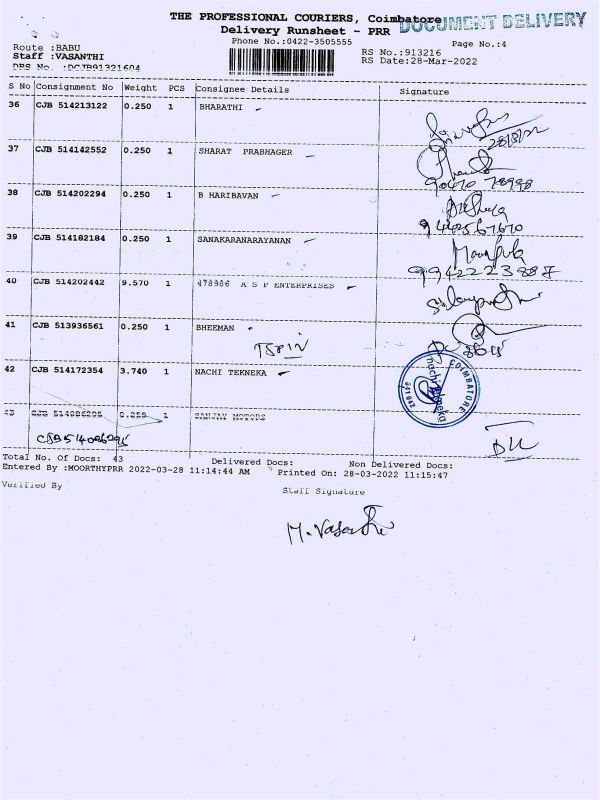 THE PROFESSIONAL COURIERS, Coimbatore
DOCUMENT DELIVERY
Delivery Runsheet - PRR
Phone No.:0422-3505555
Page No.:4
Route :BABU
RS No.:913216
Staff :VASANTHI
RS Date:28-Mar-2022
DRS No. :DCJB91321604
S No Consignment No Weight PCS Consignee Details Signature
36 CJB 514213122 0.250 1 BHARATHI
28/3/22
37 CJB 514142552 0.250 1 SHARAT PRABHAGER
38 CJB 514202294 0.250 1 B HARIBAVAN
39 CJB 514162184 0.250 1 SANAKARANARAYANAN
9942223887
40 CJB 514202442 9.570 1 478986 A S P ENTERPRISES
41 CJB 513936561 0.250 1 BHEEMAN
42 CJB 514172354 3.740 1 NACHI TEKNEKA
COIMBATORE
nachi tekneka
43 CJB 514086295 0.259 1 SANJAY MOTORS
CJB514086295
DL
Total No. Of Docs: 43 Delivered Docs: Non Delivered Docs:
Entered By :MOORTHYPRR 2022-03-28 11:14:44 AM Printed On: 28-03-2022 11:15:47
Verified By
Staff Signature
M. Vasanthi